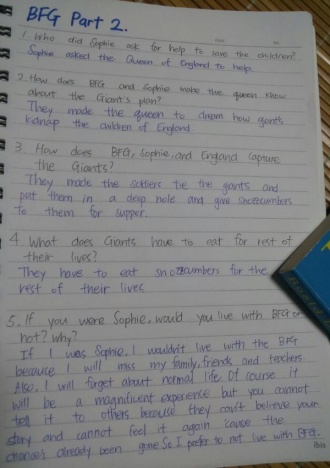 BFG Part 2.
1. Who did Sophie ask for help to save the children?
Sophie asked the Queen of England to help.
2. How does BFG and Sophie make the queen know
about the Giant's plan?
They made the queen to dream how gants
kidnap the children of England.
3. How does BFG, Sophie, and England capture
the Giants?
They made the soldiers tie the giants and
put them in a deep hole and give snozzcumbers
to them for supper.
4. What does Giants have to eat for rest of
their lives?
They have to eat snozzcumbers for the
rest of their lives
5. If you were Sophie, would you live with BFG or
not? why?
If I was Sophie, I wouldn't live with the BFG
because I will miss my family, friends, and teachers.
Also, I will forget about normal life. Of course it
will be a magnificent experience but you cannot
tell it to others because they can't believe your
story and cannot feel it again 'cause the
chance's already been gone. So I prefer to not live with BFG.